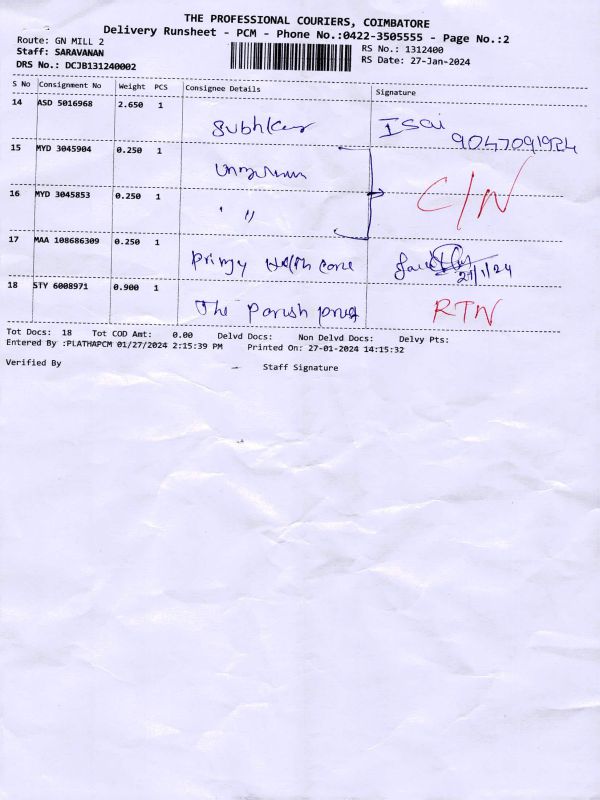 THE PROFESSIONAL COURIERS, COIMBATORE
Delivery Runsheet - PCM - Phone No.:0422-3505555 - Page No.:2
Route: GN MILL 2
RS No.: 1312400
Staff: SARAVANAN
RS Date: 27-Jan-2024
DRS No.: DCJB131240002
S No Consignment No Weight PCS Consignee Details Signature
14 ASD 5016968 2.650 1 Isai
9047091924
15 MYD 3045904 0.250 1
C/N
16 MYD 3045853 0.250 1 " "
17 MAA 108686309 0.250 1 Health care
27/1/24
18 STY 6008971 0.900 1 The Parish priest RTN
Tot Docs: 18 Tot COD Amt: 0.00 Delvd Docs: Non Delvd Docs: Delvy Pts:
Entered By :PLATHAPCM 01/27/2024 2:15:39 PM Printed On: 27-01-2024 14:15:32
Verified By Staff Signature